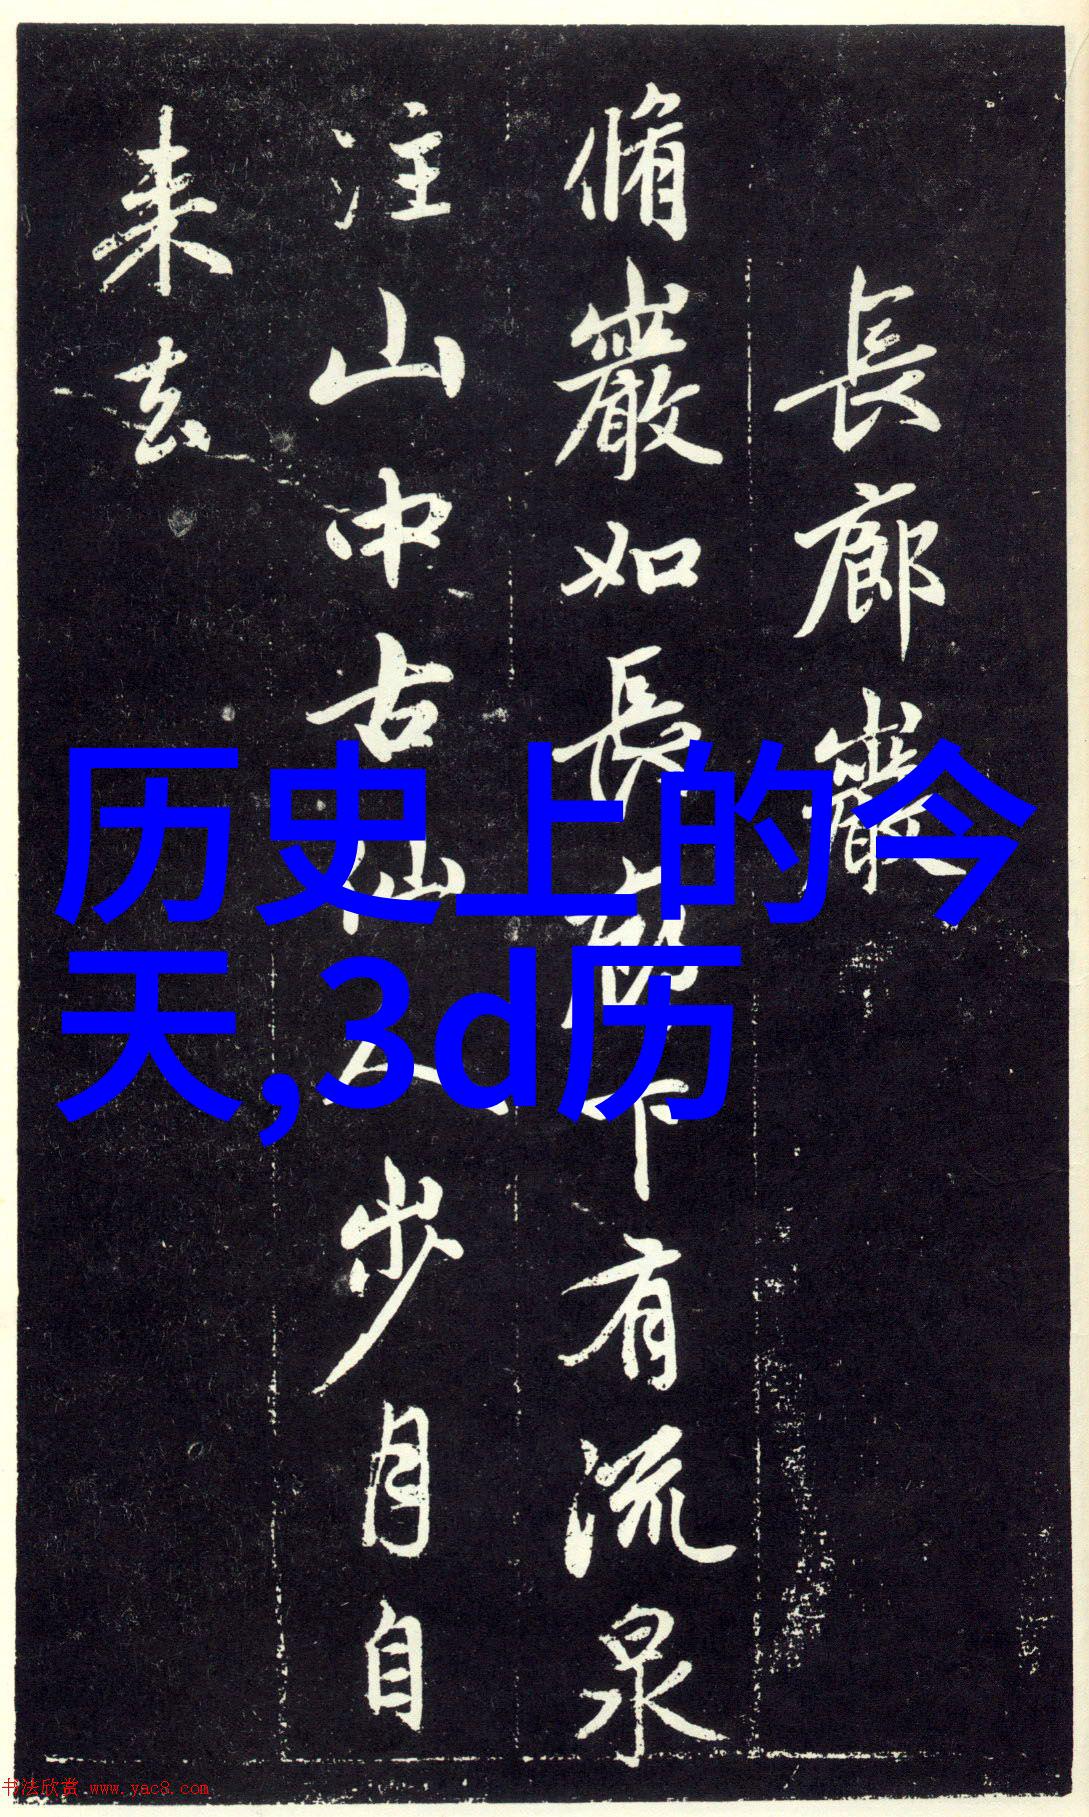 長廊巖
脩巖如長廊下有流泉
注山中古仙人步月自
来去
历史上的今
天,3d历
书法欣赏 www.yac8.com